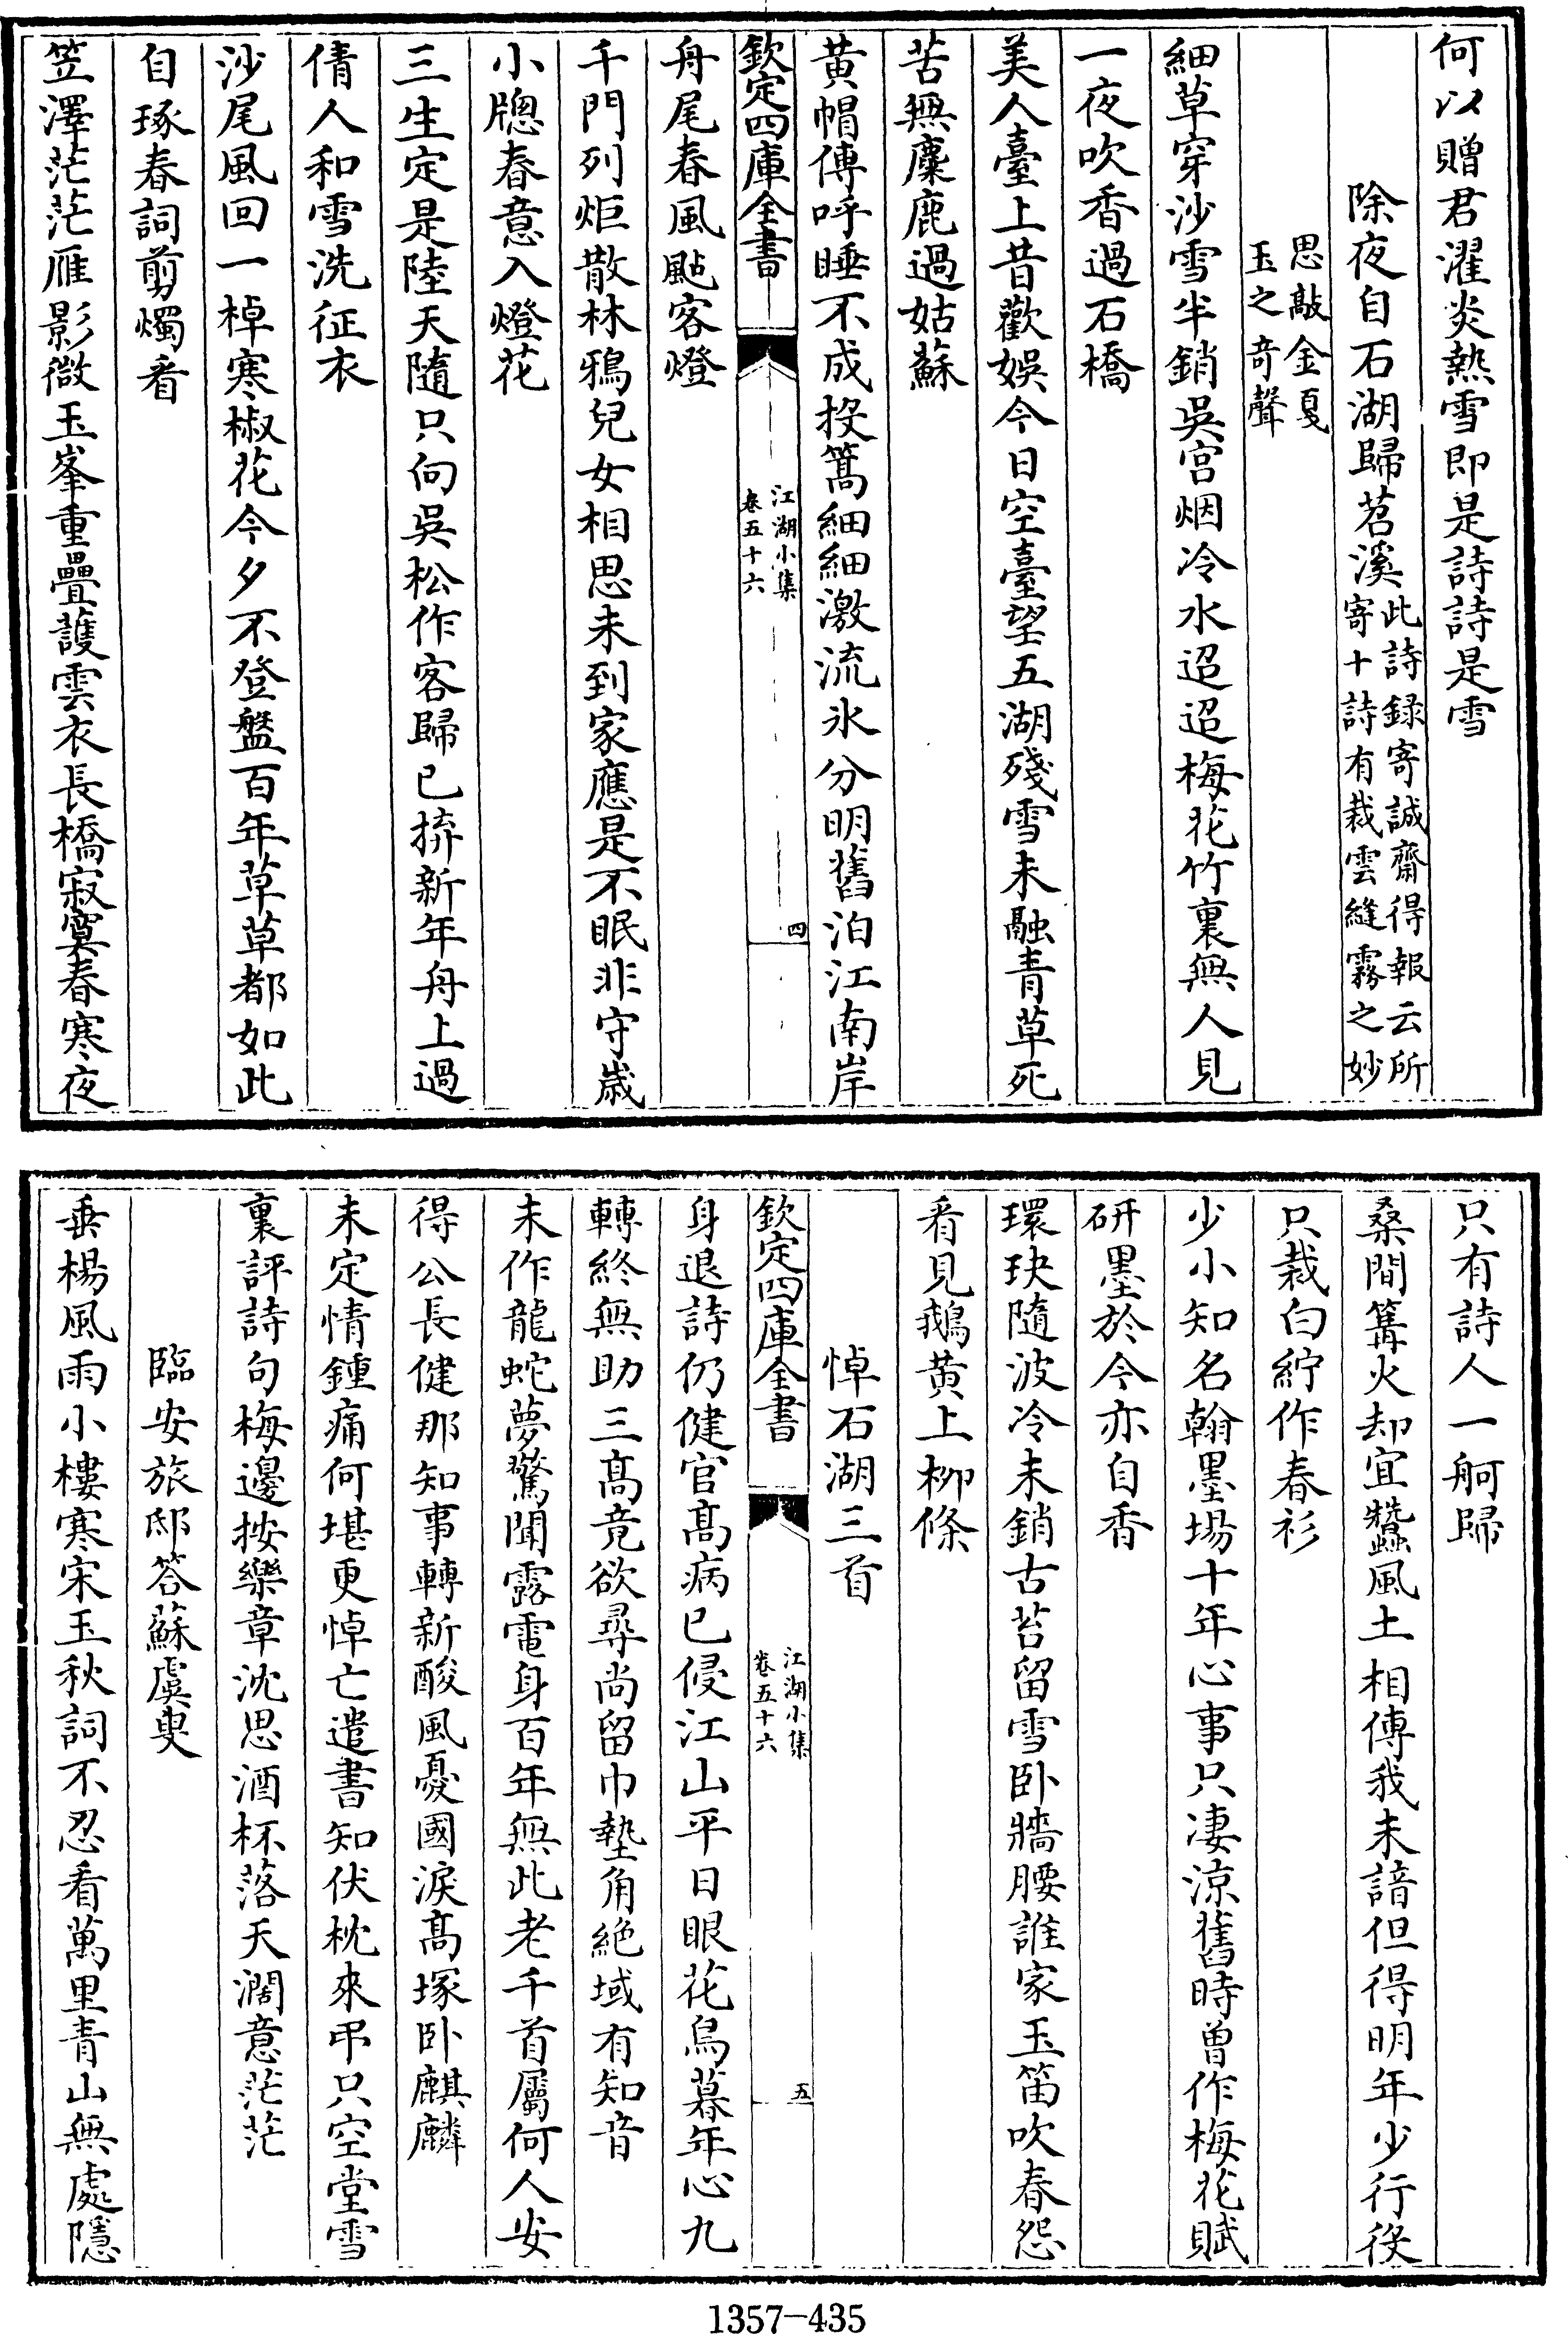 何以贈君濯炎熱雪即是詩詩是雪
除夜自石湖歸苕溪此詩録寄誠齋得報云所
寄十詩有裁雲縫霧之妙
思敲金戛
玉之奇聲
細草穿沙雪半銷吳宮烟冷水迢迢梅花竹裏無人見
一夜吹香過石橋
美人臺上昔歡娛今日空臺望五湖殘雪未融青草死
苦無麋鹿過姑蘇
黄帽傳呼睡不成投篙細細激流氷分明舊泊江南岸
欽定四庫全書
江湖小集
卷五十六
四
舟尾春風颭客燈
千門列炬散林鴉兒女相思未到家應是不眠非守歳
小牕春意入燈花
三生定是陸天隨只向吳松作客歸已拚新年舟上過
倩人和雪洗征衣
沙尾風回一棹寒椒花今夕不登盤百年草草都如此
自琢春詞剪燭看
笠澤茫茫雁影微玉峯重疊護雲衣長橋寂寞春寒夜
只有詩人一舸歸
桑間篝火却宜蠶風土相傳我未諳但得明年少行役
只裁白紵作春衫
少小知名翰墨場十年心事只凄凉舊時曾作梅花賦
研墨於今亦自香
環玦隨波冷未銷古苔留雪卧牆腰誰家玉笛吹春怨
看見鵝黄上柳條
悼石湖三首
欽定四庫全書
江湖小集
卷五十六
五
身退詩仍健官髙病已侵江山平日眼花鳥暮年心九
轉終無助三髙竟欲尋尚留巾墊角絶域有知音
未作龍蛇夢驚聞露電身百年無此老千首屬何人安
得公長健那知事轉新酸風憂國淚髙塚卧麒麟
未定情鍾痛何堪更悼亡遣書知伏枕來弔只空堂雪
裏評詩句梅邊按樂章沈思酒杯落天濶意茫茫
臨安旅邸答蘇虞叟
垂楊風雨小樓寒宋玉秋詞不忍看萬里青山無處隱
1357-435